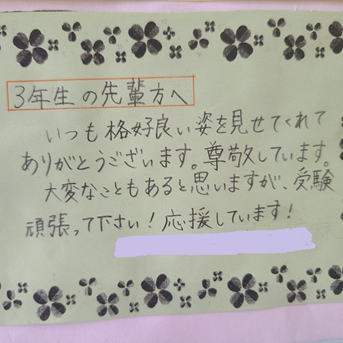 3年生の先輩方へ
いつも格好良い姿を見せてくれて
ありがとうございます。尊敬しています。
大変なこともあると思いますが、受験
頑張って下さい！応援しています！